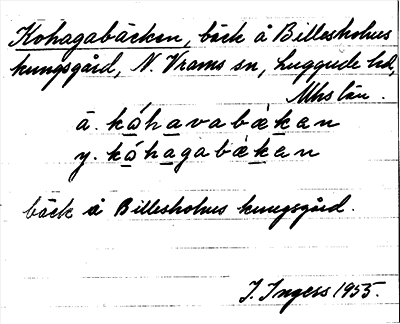 Kohagabäcken, bäck å Billesholms
kungsgård, N. Vrams sn, Luggude hd,
Mhs län.
ä. kóhavabèken
y. kóhagabèken
bäck å Billesholms kungsgård.
J. Ingess 1955.